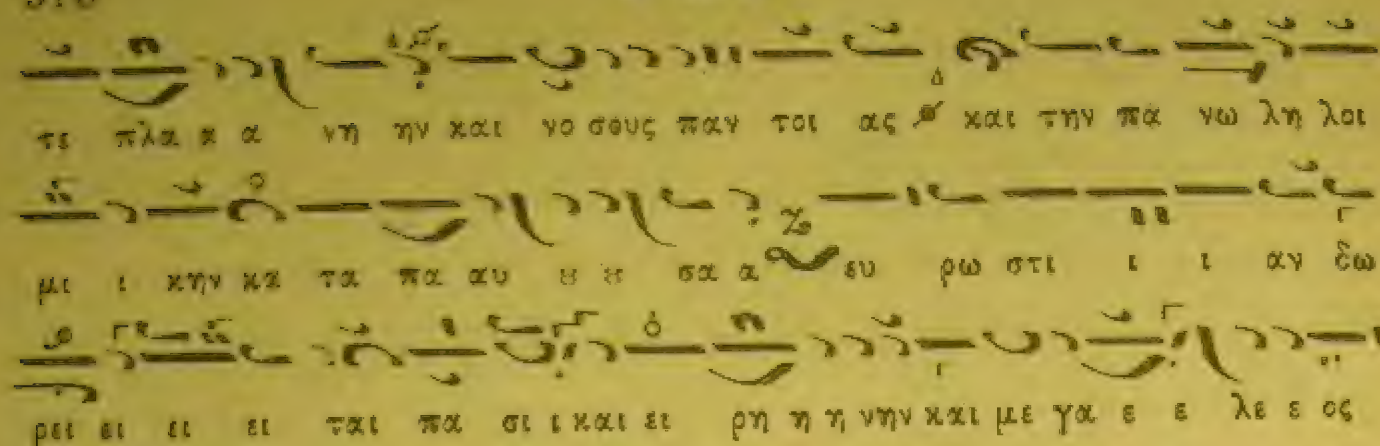 τε πλα κ α νη ην και νο σους παν τοι ας και την πα νω λη λοι
μι ι κην κα τα πα αυ ȣ ȣ σα α ευ ρω στι ι ι αν δω
ρει ει ει ει ται πα σι ι και ει ρη η η νην και με γα ε ε λε ε ος